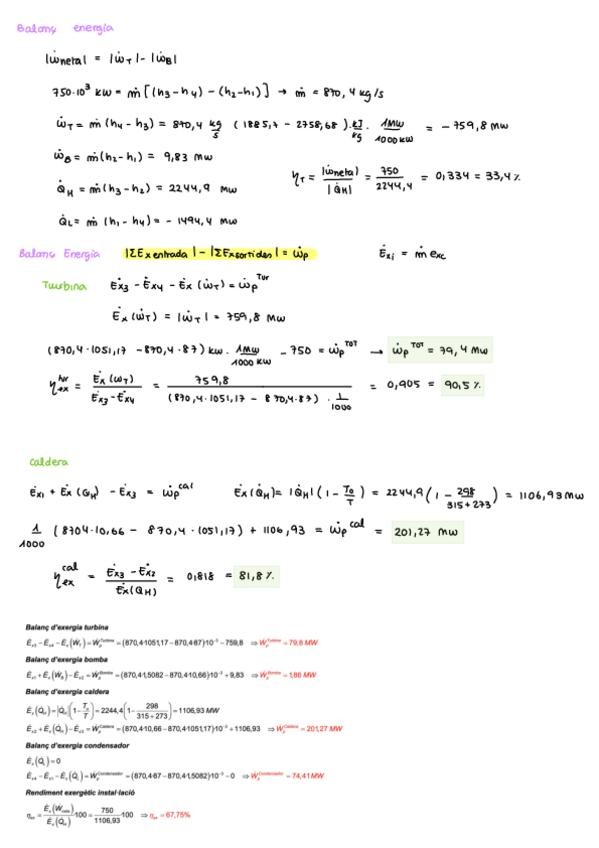 Balanç energía
|ẇneta| = |ẇT| - |ẇB|
750·10³ kW = ṁ [(h3-h4) - (h2-h1)] → ṁ = 870,4 kg/s
ẇT = ṁ(h4-h3) = 870,4 kg/s (1885,7 - 2758,68) kJ/kg · 1MW/1000kW = -759,8 MW
ẇB = ṁ(h2-h1) = 9,83 MW
ηT = |ẇneta|/|Q̇H| = 750/2244,4 = 0,334 = 33,4%
Q̇H = ṁ(h3-h2) = 2244,9 MW
Q̇L = ṁ (h1-h4) = -1494,4 MW
Balanç Energía |ΣExentrada| - |ΣExsortides| = ẇp Ėxi = ṁ exc
Turbina Ėx3 - Ėx4 - Ėx (ẇT) = ẇp^Tur
Ėx(ẇT) = |ẇT| = 759,8 MW
(870,4·1051,17 - 870,4·87) kW · 1MW/1000KW - 750 = ẇp^TOT → ẇp^TOT = 79,4 MW
ηex^tur = Ėx(ωT)/(Ėx3-Ėx4) = 759,8/((870,4·1051,17 - 870,4·87)·1/1000) = 0,905 = 90,5%
Caldera
Ėx1 + Ėx(QH) - Ėx3 = ẇp^cal Ėx(Q̇H) = |Q̇H| (1 - T0/T) = 2244,9 (1 - 298/(315+273)) = 1106,93 MW
1/1000 (8704·10,66 - 870,4·1051,17) + 1106,93 = ẇp^cal = 201,27 MW
ηex^cal = (Ėx3 - Ėx2)/Ėx(QH) = 0,818 = 81,8%
Balanç d'exergia turbina
Ėx3 - Ėx4 - Ėx(ẆT) = Ẇp^Turbina = (870,4·1051,17 - 870,4·87)·10⁻³ - 759,8 ⇒ Ẇp^Turbina = 79,8 MW
Balanç d'exergia bomba
Ėx1 + Ėx(ẆB) - Ėx2 = Ẇp^Bomba = (870,4·1,5082 - 870,4·10,66)·10⁻³ + 9,83 ⇒ Ẇp^Bomba = 1,86 MW
Balanç d'exergia caldera
Ėx(Q̇H) = |Q̇H| (1 - T0/T) = 2244,4 (1 - 298/(315+273)) = 1106,93 MW
Ėx2 + Ėx(Q̇H) - Ėx3 = Ẇp^Caldera = (870,4·10,66 - 870,4·1051,17)·10⁻³ + 1106,93 ⇒ Ẇp^Caldera = 201,27 MW
Balanç d'exergia condensador
Ėx(Q̇L) = 0
Ėx4 - Ėx1 - Ėx(Q̇L) = Ẇp^Condensador = (870,4·87 - 870,4·1,5082)·10⁻³ - 0 ⇒ Ẇp^Condensador = 74,41 MW
Rendiment exergètic instal·lació
ηex = Ėx(Ẇneta)/Ėx(Q̇H) 100 = 750/1106,93 100 ⇒ ηex = 67,75%